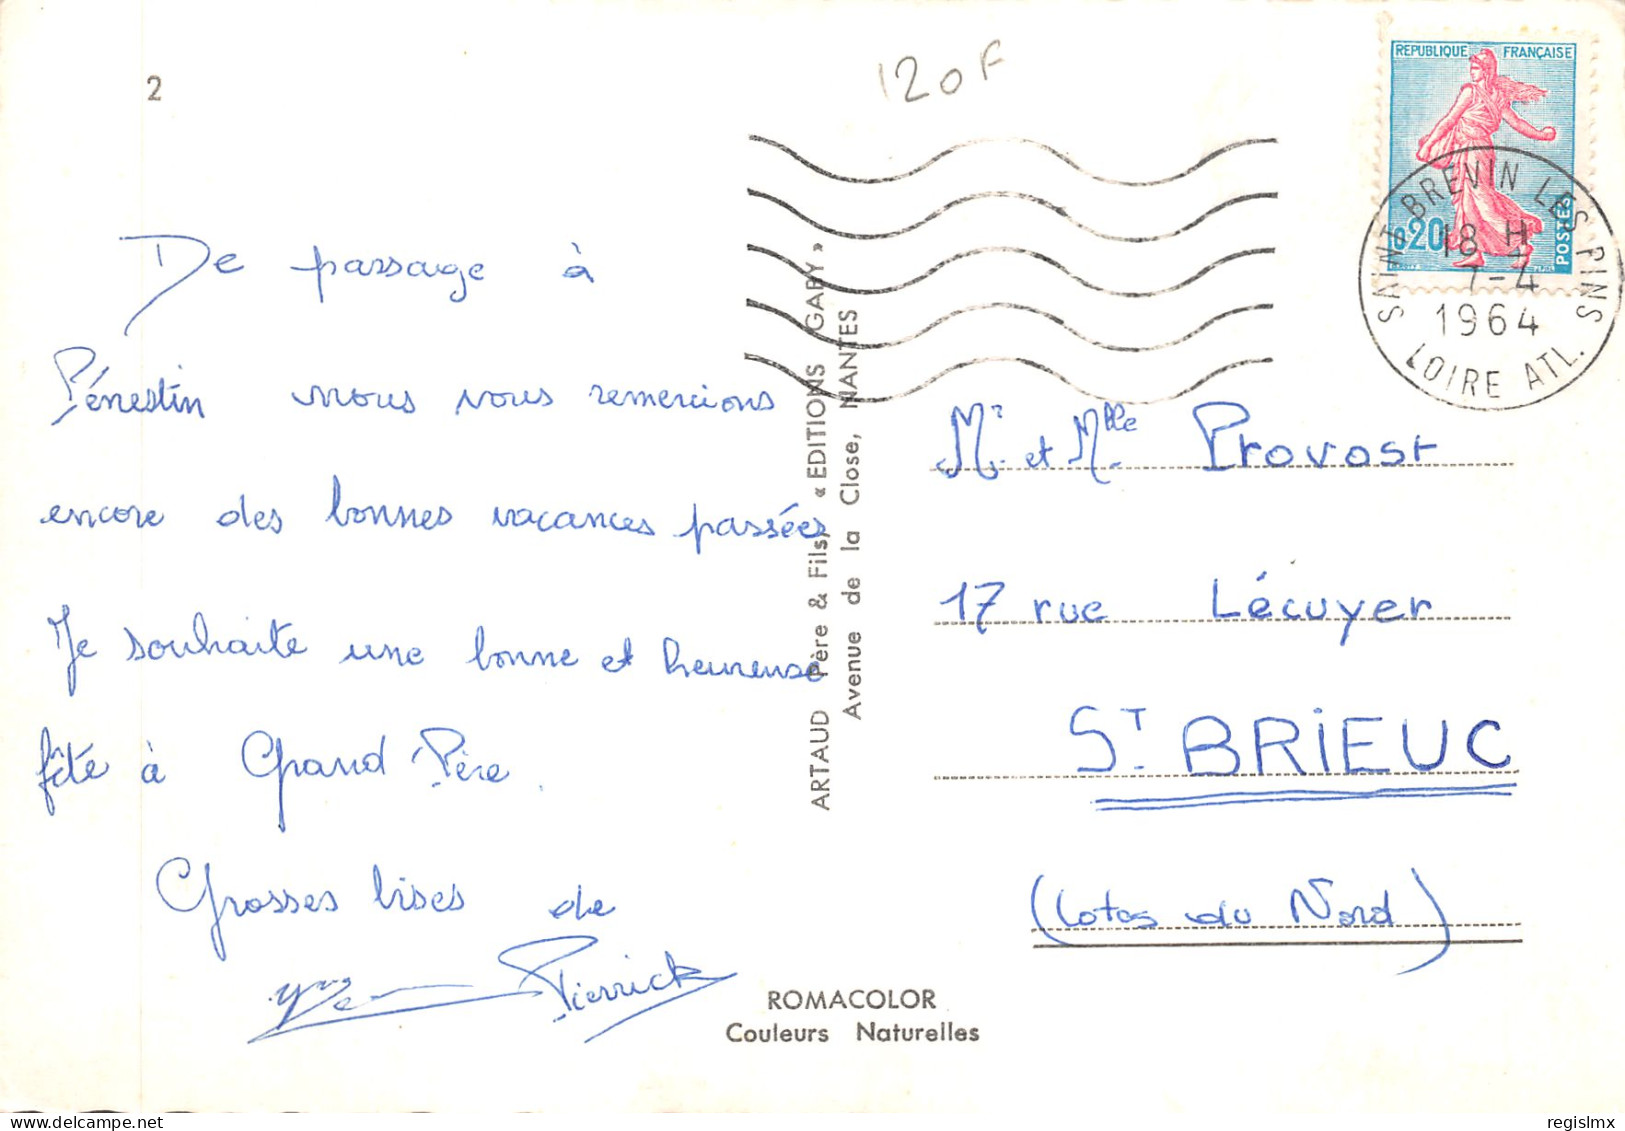 2
120F
REPUBLIQUE FRANÇAISE
0,20
POSTES
SAINT BREVIN LES PINS
18 H
7-4
1964
LOIRE ATL.
De passage à
Pénestin nous vous remercions
encore des bonnes vacances passées
Je souhaite une bonne et heureuse
fête à Grand Père.
Grosses bises de
Pierrick
ARTAUD Père & Fils, « EDITIONS GABY »
Avenue de la Close, NANTES
Mr. et Mlle Provost
17 rue Lécuyer
ST. BRIEUC
(Cotes du Nord)
ROMACOLOR
Couleurs Naturelles
regislmx